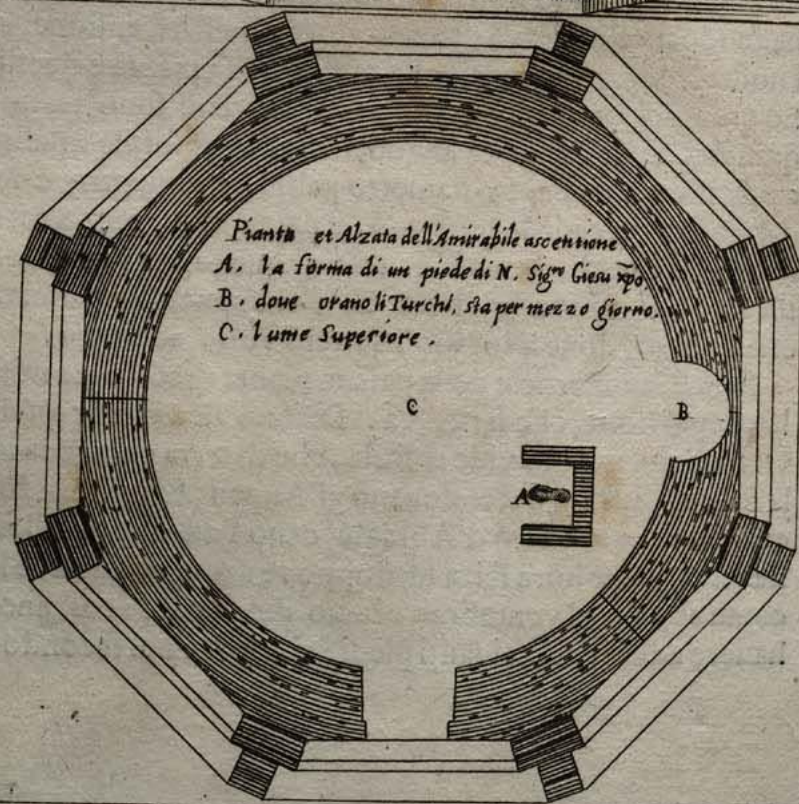 Pianta et Alzata dell'Amirabile ascentione
A. la forma di un piede di N. Sig.ro Giesu xp̄o
B. doue orano li Turchi, sta per mezzo giorno.
C. lume Superiore.
C
B
A